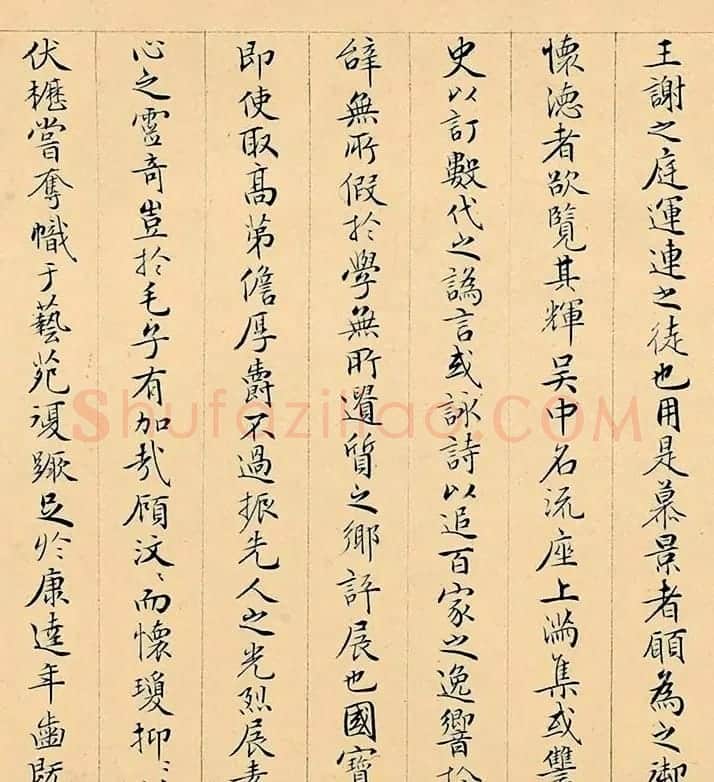 王謝之庭運連之徒也用是慕景者願為之御
懷德者欲覽其輝吳中名流座上滿集或讐
史以訂數代之譌言或詠詩以追百家之逸響於
辭無所假於學無所遺質之鄉評展也國寶
即使取高第儋厚爵不過振先人之光烈展
心之靈奇豈於毛子有加哉顧汶〻而懷瓊抑〻
伏櫪嘗奪幟于藝苑復蹶足於康逵年齒既
Shufaziliao.COM